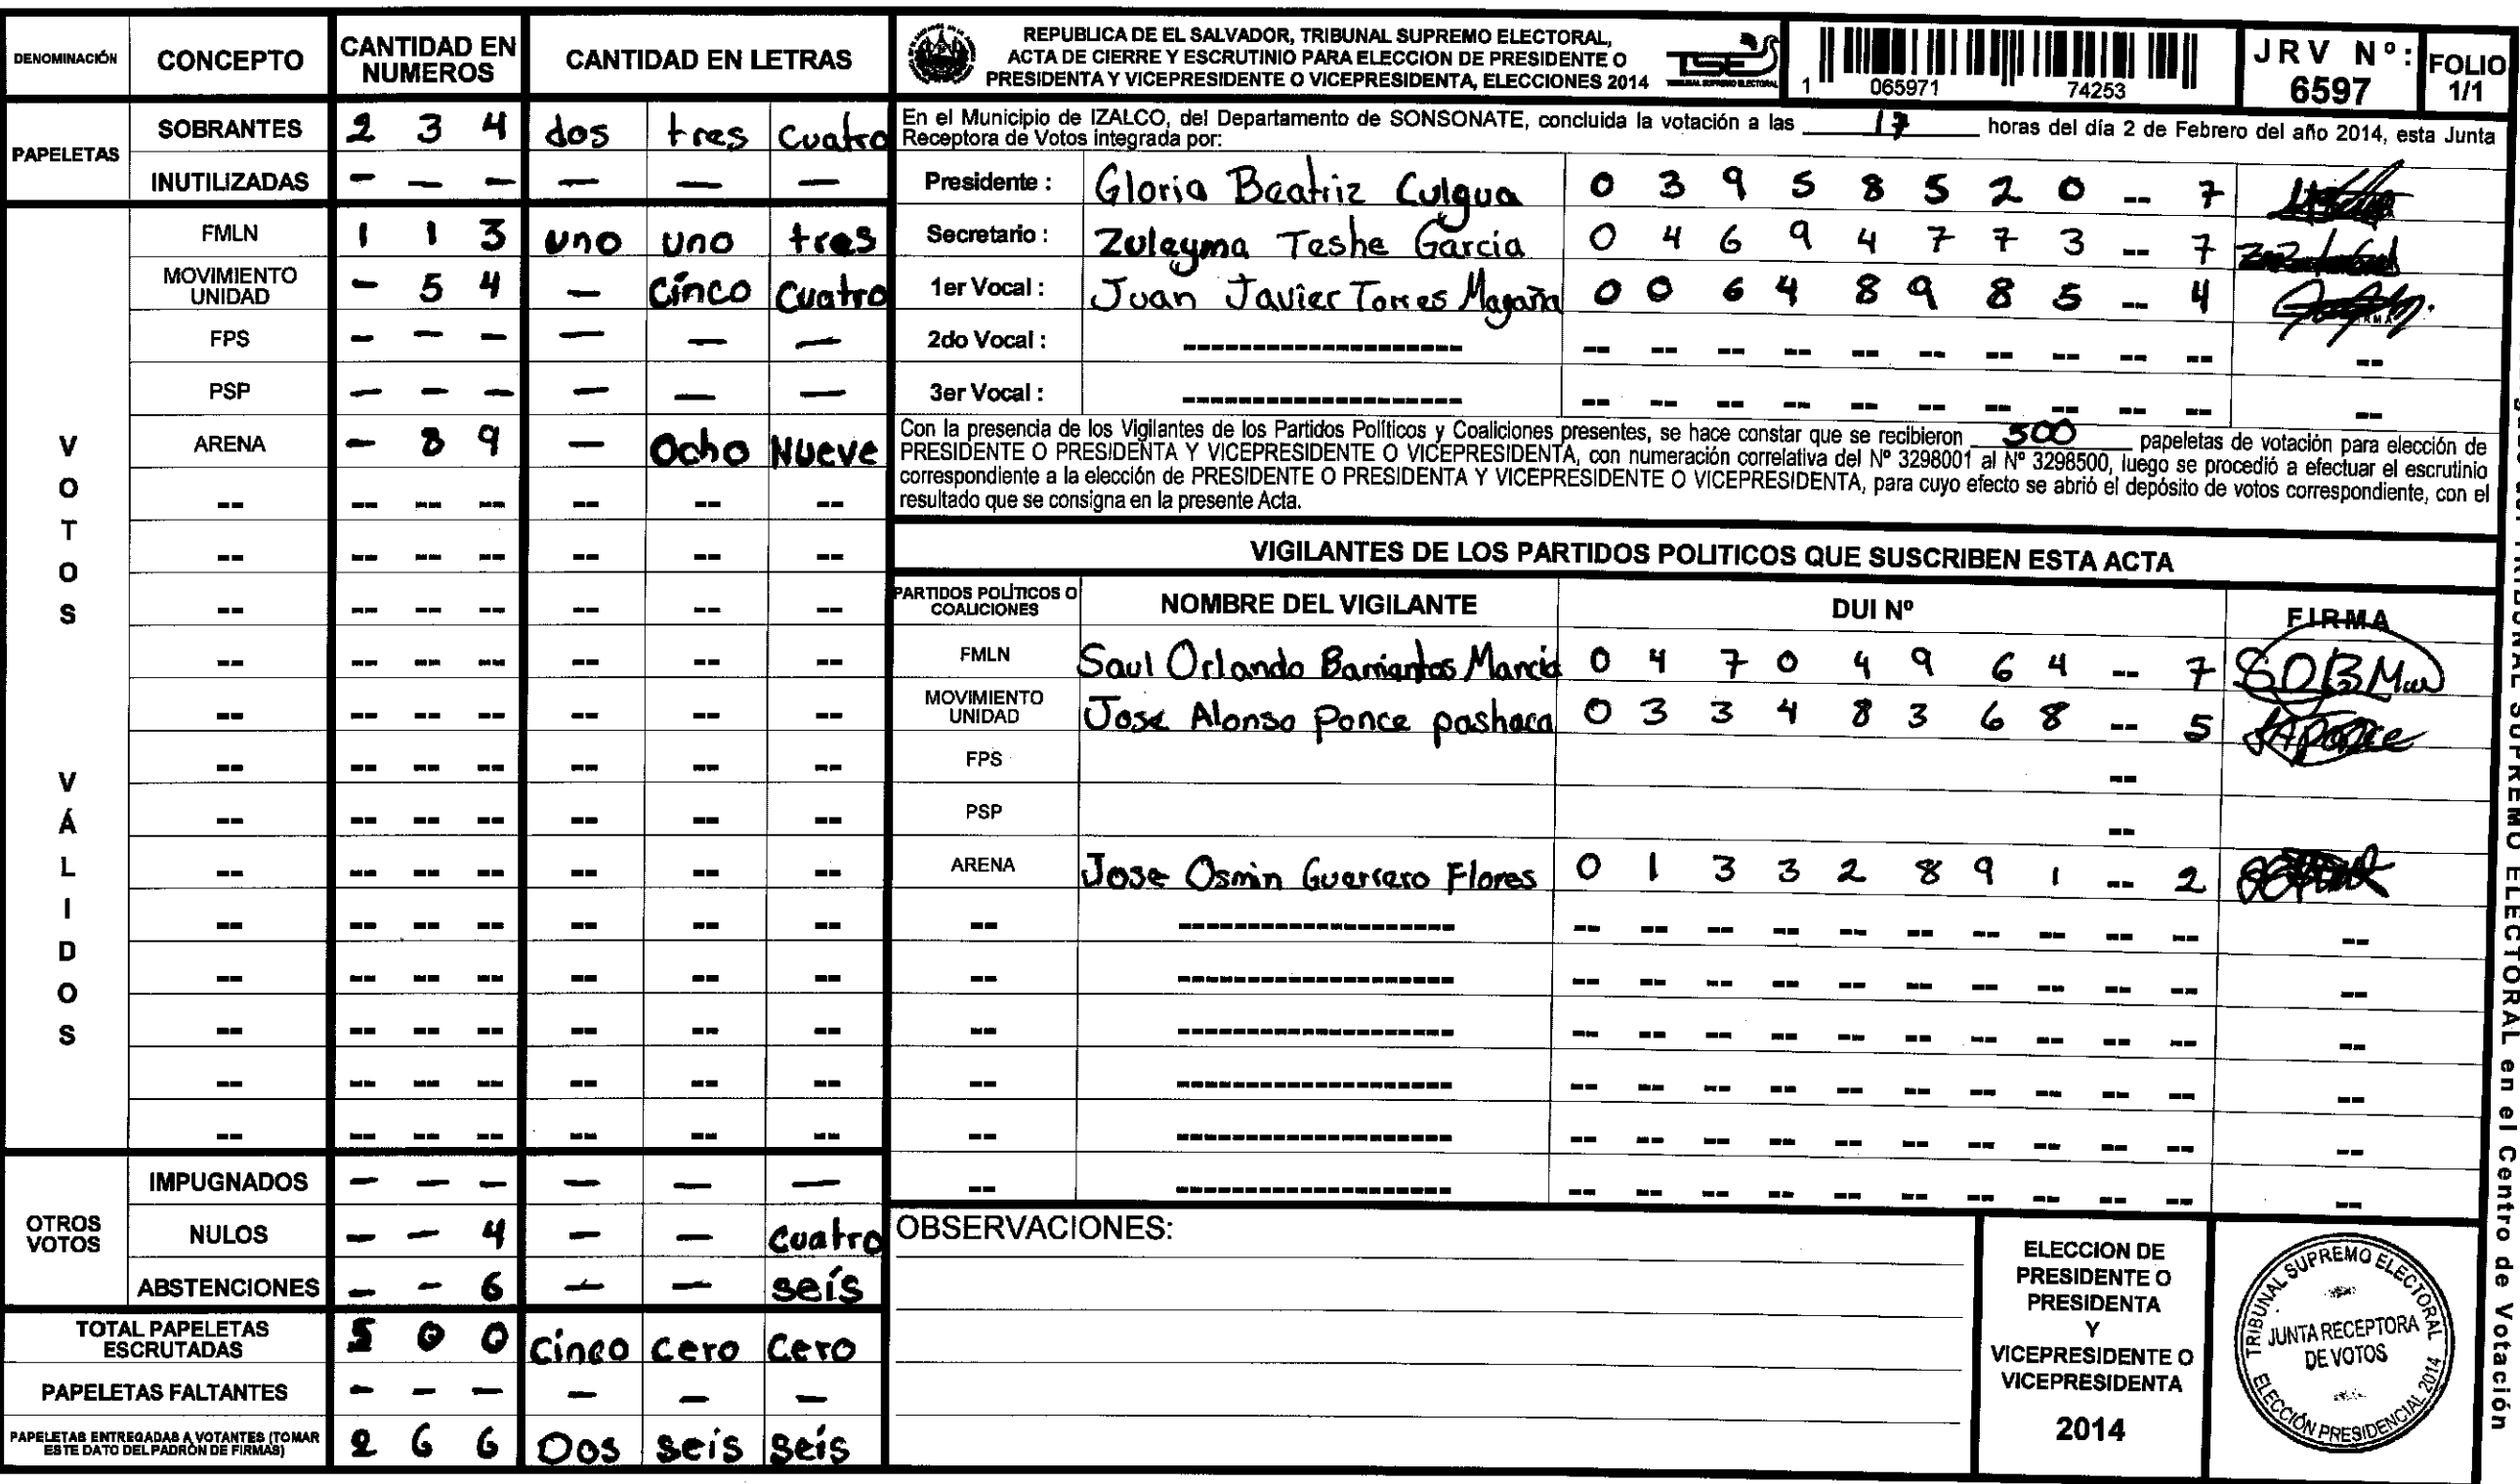 DENOMINACIÓN CONCEPTO CANTIDAD EN NUMEROS CANTIDAD EN LETRAS
PAPELETAS
SOBRANTES 2 3 4 dos tres cuatro
INUTILIZADAS - - - - - -
VOTOS VÁLIDOS
FMLN 1 1 3 uno uno tres
MOVIMIENTO UNIDAD - 5 4 - Cinco Cuatro
FPS - - - - - -
PSP - - - - - -
ARENA - 8 9 - Ocho Nueve
-- -- -- -- -- -- --
-- -- -- -- -- -- --
-- -- -- -- -- -- --
-- -- -- -- -- -- --
-- -- -- -- -- -- --
-- -- -- -- -- -- --
-- -- -- -- -- -- --
-- -- -- -- -- -- --
-- -- -- -- -- -- --
-- -- -- -- -- -- --
-- -- -- -- -- -- --
-- -- -- -- -- -- --
-- -- -- -- -- -- --
OTROS VOTOS
IMPUGNADOS - - - - - -
NULOS - - 4 - - cuatro
ABSTENCIONES - - 6 - - seís
TOTAL PAPELETAS ESCRUTADAS 5 0 0 Cinco cero Cero
PAPELETAS FALTANTES - - - - - -
PAPELETAS ENTREGADAS A VOTANTES (TOMAR ESTE DATO DEL PADRÓN DE FIRMAS) 2 6 6 Dos seis Seís
REPUBLICA DE EL SALVADOR, TRIBUNAL SUPREMO ELECTORAL,
ACTA DE CIERRE Y ESCRUTINIO PARA ELECCION DE PRESIDENTE O
PRESIDENTA Y VICEPRESIDENTE O VICEPRESIDENTA, ELECCIONES 2014
TSE
TRIBUNAL SUPREMO ELECTORAL
1 065971 74253
JRV Nº: 6597
FOLIO 1/1
En el Municipio de IZALCO, del Departamento de SONSONATE, concluida la votación a las 17 horas del día 2 de Febrero del año 2014, esta Junta
Receptora de Votos integrada por:
Presidente : Gloria Beatriz Culgua 0 3 9 5 8 5 2 0 -- 7
Secretario : Zuleyma Teshe Garcia 0 4 6 9 4 7 7 3 -- 7
1er Vocal : Juan Javier Torres Magaña 0 0 6 4 8 9 8 5 -- 4
2do Vocal : ------------------- -- -- -- -- -- -- -- -- -- -- --
3er Vocal : ------------------- -- -- -- -- -- -- -- -- -- -- --
Con la presencia de los Vigilantes de los Partidos Políticos y Coaliciones presentes, se hace constar que se recibieron 500 papeletas de votación para elección de
PRESIDENTE O PRESIDENTA Y VICEPRESIDENTE O VICEPRESIDENTA, con numeración correlativa del Nº 3298001 al Nº 3298500, luego se procedió a efectuar el escrutinio
correspondiente a la elección de PRESIDENTE O PRESIDENTA Y VICEPRESIDENTE O VICEPRESIDENTA, para cuyo efecto se abrió el depósito de votos correspondiente, con el
resultado que se consigna en la presente Acta.
VIGILANTES DE LOS PARTIDOS POLITICOS QUE SUSCRIBEN ESTA ACTA
PARTIDOS POLÍTICOS O COALICIONES NOMBRE DEL VIGILANTE DUI Nº FIRMA
FMLN Saul Orlando Barrientos Marcia 0 4 7 0 4 9 6 4 -- 7 SOBM
MOVIMIENTO UNIDAD Jose Alonso Ponce pashaca 0 3 3 4 8 3 6 8 -- 5 JAPonce
FPS --
PSP --
ARENA Jose Osmin Guerrero Flores 0 1 3 3 2 8 9 1 -- 2
-- ------------------- -- -- -- -- -- -- -- -- -- -- --
-- ------------------- -- -- -- -- -- -- -- -- -- -- --
-- ------------------- -- -- -- -- -- -- -- -- -- -- --
-- ------------------- -- -- -- -- -- -- -- -- -- -- --
-- ------------------- -- -- -- -- -- -- -- -- -- -- --
-- ------------------- -- -- -- -- -- -- -- -- -- -- --
OBSERVACIONES:
ELECCION DE
PRESIDENTE O
PRESIDENTA
Y
VICEPRESIDENTE O
VICEPRESIDENTA
2014
TRIBUNAL SUPREMO ELECTORAL
JUNTA RECEPTORA
DE VOTOS
ELECCIÓN PRESIDENCIAL 2014
TRIBUNAL SUPREMO ELECTORAL en el Centro de Votación